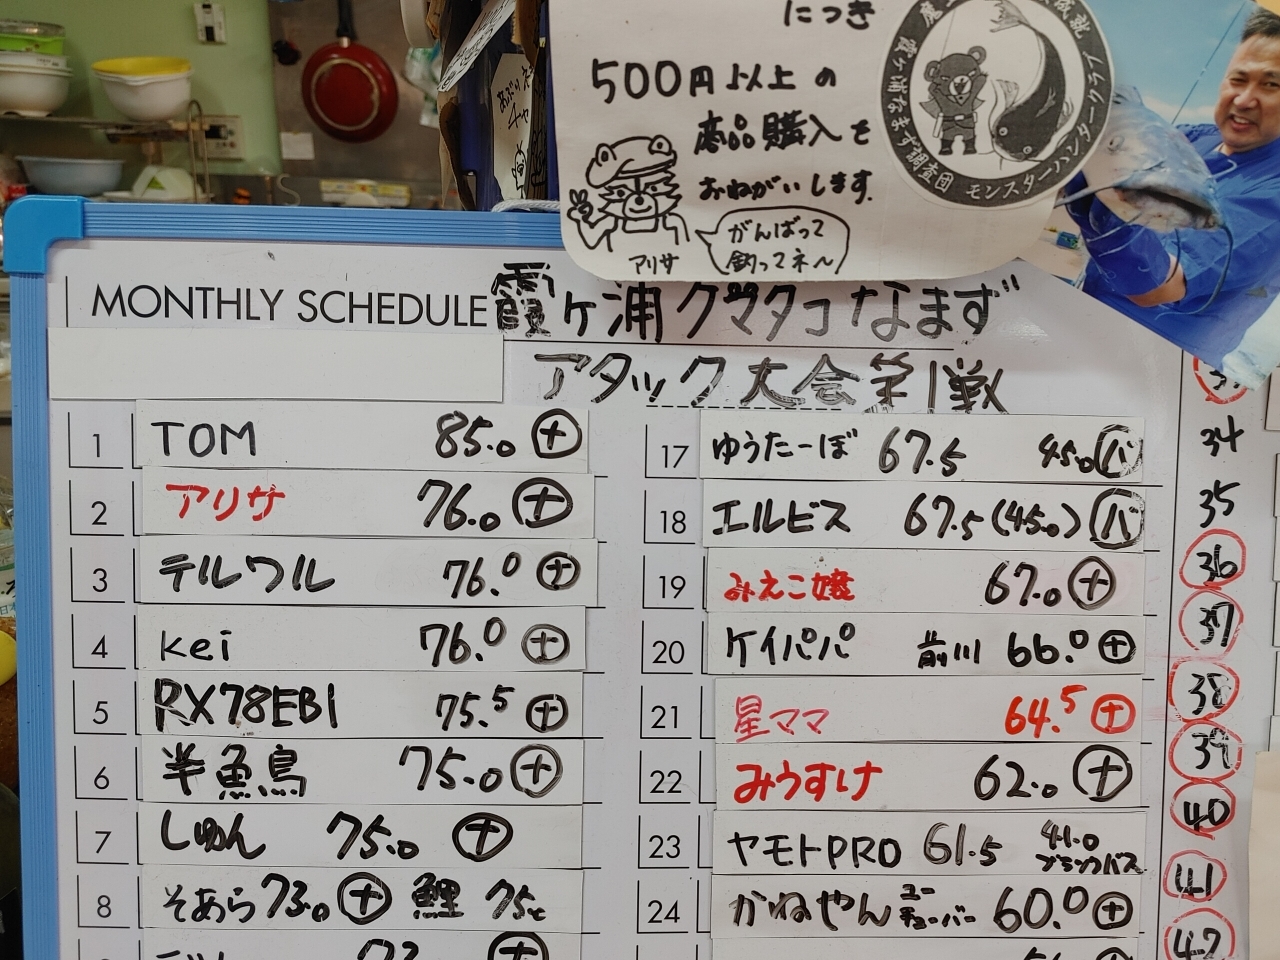 につき
500円以上の
商品購入を
おねがいします.
がんばって
釣ってネ〜
アリサ
霞ヶ浦なまず調査団 モンスターハンタークラブ
MONTHLY SCHEDULE 霞ヶ浦クマタコなまず
アタック大会第1戦
1 TOM 85.0 ㊉
2 アリサ 76.0 ㊉
3 テルワル 76.0 ㊉
4 kei 76.0 ㊉
5 RX78EBI 75.5 ㊉
6 半魚鳥 75.0 ㊉
7 しゅん 75.0 ㊉
8 そあら 73.0 ㊉ 鯉 75c
17 ゆうたーぼ 67.5 45.0 バ
18 エルビス 67.5 (45.0) バ
19 みえこ嬢 67.0 ㊉
20 ケイパパ 前川 66.0 ㊉
21 星ママ 64.5 ㊉
22 みうすけ 62.0 ㊉
23 ヤモトPRO 61.5 41.0 ブラックバス
24 かねやん ユーチューバー 60.0 ㊉
34
35
36
37
38
39
40
41
42